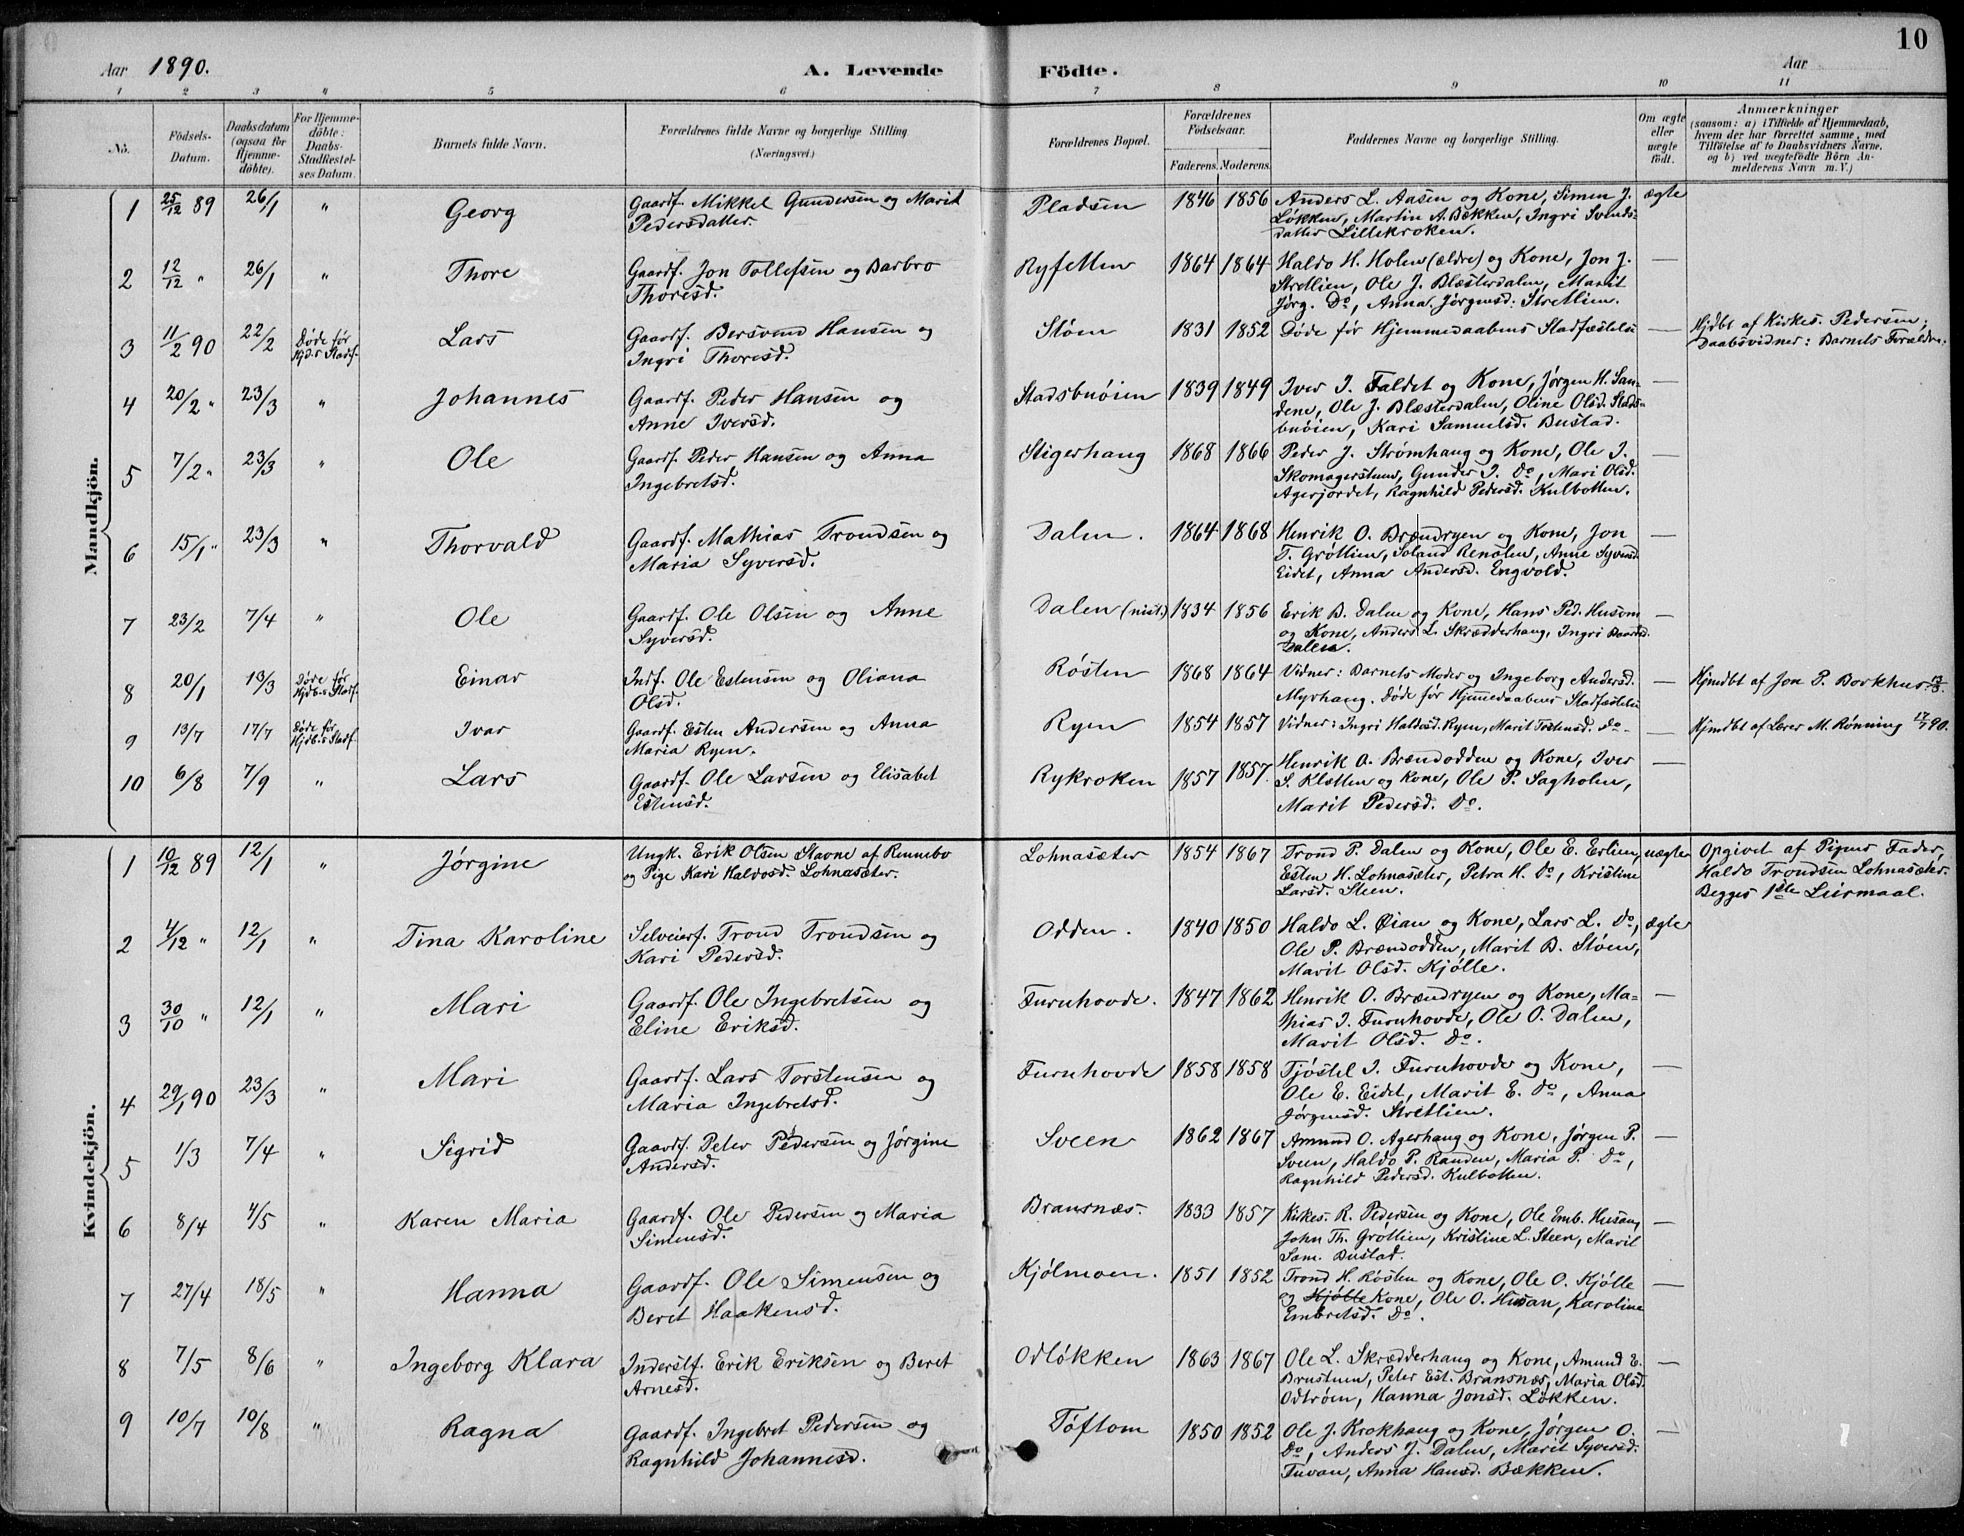 10
Aar 1890. A. Levende Födte. Aar
1 2 3 4 5 6 7 8 9 10 11
No. Födsels-Datum. Daabsdatum (ogsaa for Hjemme-döbte). For Hjemme-döbte: Daabs-Stadfæstel-ses Datum. Barnets fulde Navn. Forældrenes fulde Navne og borgerlige Stilling (Næringsvei.) Forældrenes Bopæl. Forældrenes Födselsaar. Faderens. Moderens. Faddernes Navne og borgerlige Stilling. Om ægte eller uægte födt. Anmærkninger (saasom: a) i Tilfælde af Hjemmedaab, hvem der har forrettet samme, med Tilföielse af to Daabsvidners Navne, og b) ved uægtefödte Börn An-melderens Navn m. V.)
Mandkjön.
1 25/12 89 26/1 " Georg Gaardf. Mikkel Gundersen og Marit Pladsen 1846 1856 Anders L. Aasen og Kone, Simen J. ægte
Pedersdatter. Løkken, Martin A. Bækken, Ingri Svends-
datter Lillekroken.
2 12/12 " 26/1 " Thore Gaardf. Jon Tollefsen og Barbro Ryfetten 1864 1864 Haldo H. Holen (ældre) og Kone, Jon J. —
Thoresd. Stretlien, Ole J. Blæsterdalen, Marit
Jørg. Do, Anna Jørgensd. Stretlien.
3 11/2 90 22/2 Døde før Hjd.s Stadf. Lars Gaardf. Bersvend Hansen og Støen 1831 1852 Døde før Hjemmedaabens Stadfæstelse — Hjdbt af Kirkes. Pedersen;
Ingri Thoresd. Daabsvidner: Barnets Forældre.
4 20/2 " 23/3 " Johannes Gaardf. Peder Hansen og Stadsbuøien 1839 1849 Iver I. Faldet og Kone, Jørgen H. San- —
Anne Iversd. dene, Ole J. Blæsterdalen, Oline Olsd. Stads-
buøien, Kari Samuelsd. Bustad.
5 7/2 " 23/3 " Ole Gaardf. Peder Hansen og Anna Stigerhaug 1868 1866 Peder J. Strømhaug og Kone, Ole I. —
Ingebretsd. Skomagerstuen, Gunder I. Do, Mari Olsd.
Agerjordet, Ragnhild Pedersd. Kulbotten.
6 15/1 " 23/3 " Thorvald Gaardf. Mathias Trondsen og Dalen. 1864 1868 Henrik O. Brændryen og Kone, Jon —
Maria Syversd. T. Grøtlien, Renolen, Anne Syversd.
Eidet, Anna Andersd. Engvold.
7 23/2 7/4 " Ole Gaardf. Ole Olsen og Anne Dalen 1834 1856 Erik B. Dalen og Kone, Hans Ped. Husom —
Syversd. og Kone, Anders L. Skrædderhaug, Ingri
Dalen.
8 20/1 13/3 Døde før Hjdb.s Stadf. Einar Indf. Ole Estensen og Oliana Røsten 1868 1864 Vidner: Barnets Moder og Ingeborg Andersd. — Hjmdbt af Jon P. Borkhus 13/3.
Olsd. Myrhaug. Døde før Hjemmedaabens Stadfæstelse
9 13/7 17/7 Døde før Hjdb.s Stadf. Ivar Gaardf. Esten Andersen og Anna Ryen 1854 1857 Vidner: Ingri Haldosd. Ryen, Marit Estensd. Do. — Hjmdbt af Lærer M. Rønning 17/7 90.
Maria Ryen.
10 6/8 7/9 " Lars Gaardf. Ole Larsen og Elisabet Rykroken 1857 1857. Henrik O. Brændodden og Kone, Iver —
Estensd. S. Kletten og Kone, Ole P. Sagholen,
Marit Pedersd. Do.
Kvindekjön.
1 10/12 89 12/1 " Jørgine Ungk. Erik Olsen Stavne af Rennebo Lohnasæter 1854 1867 Trond P. Dalen og Kone, Ole E. Erlien, uægte Opgivet af Pigens Fader,
og Pige Kari Haldosd. Lohnasæter. Esten H. Lohnasæter, Petra H. Do, Kristine Haldo Trondsen Lohnasæter.
Larsd. Steen. Begges 1ste Leiermaal.
2 4/12 " 12/1 " Tina Karoline Selveierf. Trond Trondsen og Odden. 1840 1850 Haldo L. Øian og Kone, Lars L. Do, ægte
Kari Pedersd. Ole P. Brændodden, Marit B. Støen,
Marit Olsd. Kjølle.
3 30/10 " 12/1 " Mari Gaardf. Ole Ingebretsen og Furuhovde. 1847 1862 Henrik O. Brændryen og Kone, Ma- —
Eline Eriksd. thias I. Furuhovde, Ole O. Dalen,
Marit Olsd. Do.
4 29/1 90 23/3 " Mari Gaardf. Lars Torstensen og Furuhovde 1858 1858 Tjøstel I. Furuhovde og Kone, —
Maria Ingebretsd. Ole E. Eidet, Marit E. Do, Anna
Jørgensd. Stretlien.
5 1/3 7/4 " Sigrid Gaardf. Peter Pedersen og Jørgine Sveen 1862 1867 Amund O. Agerhaug og Kone, Jørgen P. —
Andersd. Sveen, Haldo P. Randen, Maria P. Do,
Ragnhild Pedersd. Kulbotten.
6 8/4 4/5 " Karen Maria Gaardf. Ole Pedersen og Maria Bransnæs. 1833 1857 Kirkes. R. Pedersen og Kone, Ole Emb. Husan, —
Simensd. John Th. Grøtlien, Kristine L. Steen, Marit
Sam. Bustad.
7 27/4 18/5 " Hanna Gaardf. Ole Simensen og Kjølmoen. 1851 1852 Trond H. Røsten og Kone, Ole O. Kjølle —
Beret Haakensd. og Kjølle Kone, Ole O. Husan, Karoline
Embretsd. Do.
8 7/5 8/6 " Ingeborg Klara Inderstf. Erik Eriksen og Beret Odløkken 1863 1867 Ole L. Skrædderhaug og Kone, Amund E. —
Arnesd. Brustuen, Peter Est. Bransnæs, Maria Olsd.
Odtrøen, Hanna Jonsd. Løkken.
9 10/7 10/8 " Ragna Gaardf. Ingebret Pedersen og Tøftom 1850 1852 Ole J. Krokhaug og Kone, Jørgen O. —
Ragnhild Johannesd. Do, Anders J. Dalen, Marit Syversd.
Tuvan, Anna Hansd. Bækken.